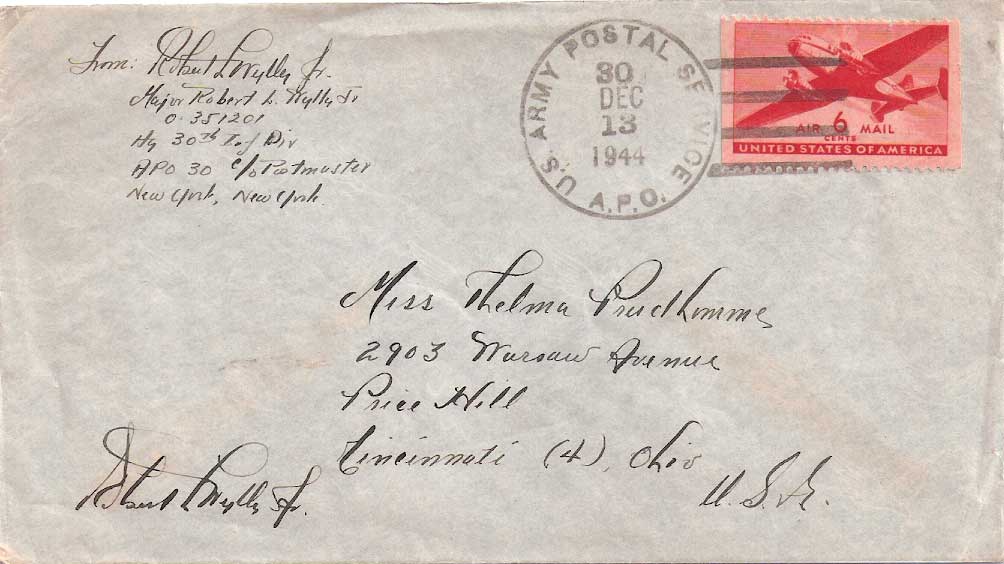 From: Robert L Wylly Jr.
Major Robert L. Wylly Jr
O-351201
Hq 30th Inf Div
APO 30 c/o Postmaster
New York, New York.
U.S. ARMY POSTAL SE VICE
30
DEC
13
1944
A.P.O.
AIR 6 MAIL
CENTS
UNITED STATES OF AMERICA
Miss Thelma Prudhomme
2903 Warsaw Avenue
Price Hill
Cincinnati (4), Ohio
U.S.A.
Robert L Wylly Jr.